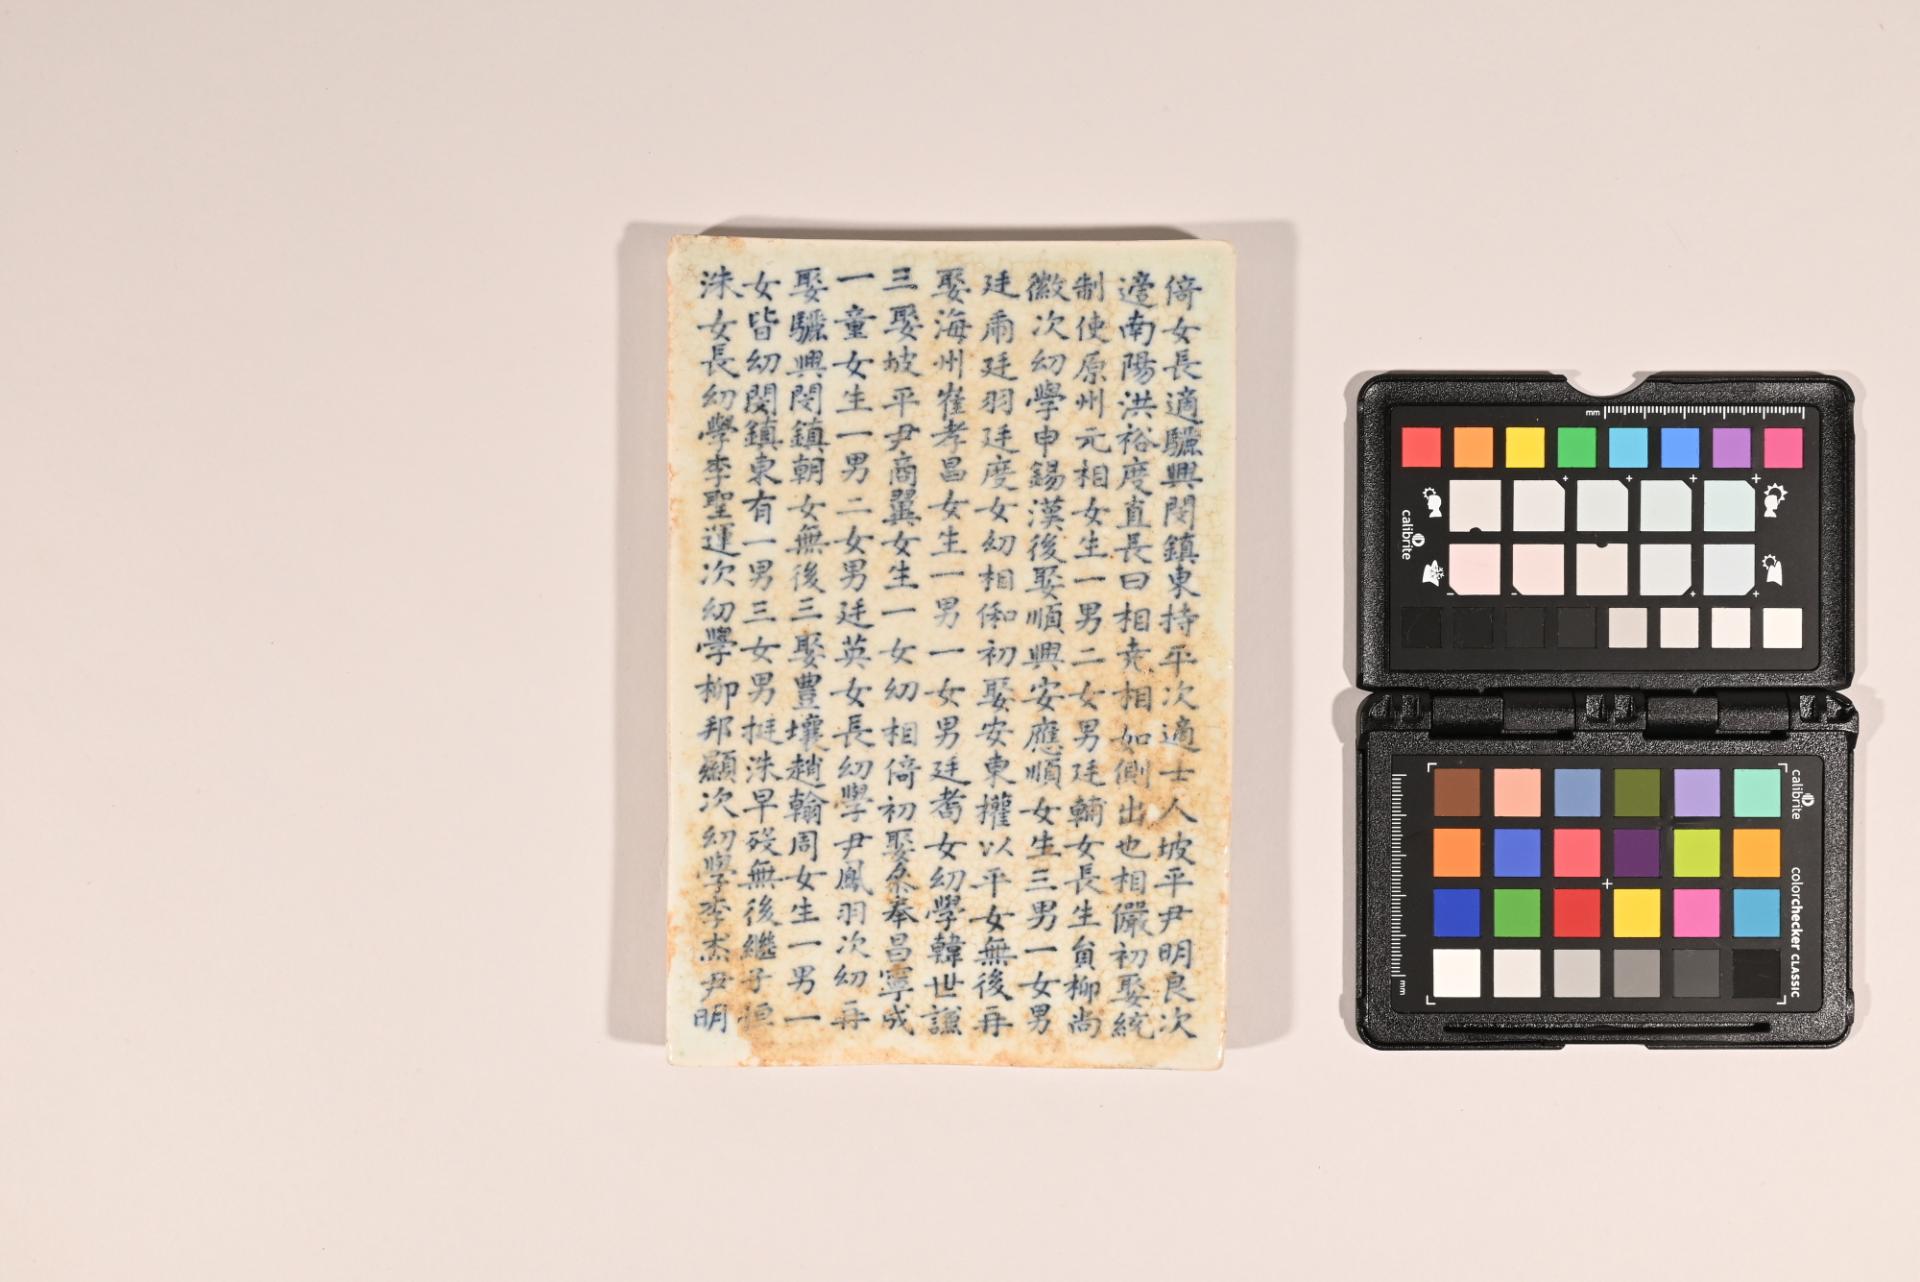 倚女長適驪興閔鎮東持平次適士人坡平尹明良次
適南陽洪裕度直長曰相堯相如側出也相儼初娶統
制使原州元相女生一男二女男廷輔女長生員柳尚
徽次幼學申錫漢後娶順興安應順女生三男一女男
廷爾廷羽廷度女幼相俰初娶安東權以平女無後再
娶海州崔孝昌女生一男一女男廷耉女幼學韓世謙
三娶坡平尹商翼女生一女幼相倚初娶叅奉昌寧成
一童女生一男二女男廷英女長幼學尹鳳羽次幼再
娶驪興閔鎮朝女無後三娶豊壤趙翰周女生一男一
女皆幼閔鎮東有一男三女男挺洙早歿無後繼子
洙女長幼學李聖運次幼學柳邦顯次幼學李杰尹明
mm
calibrite
calibrite
colorchecker CLASSIC
mm